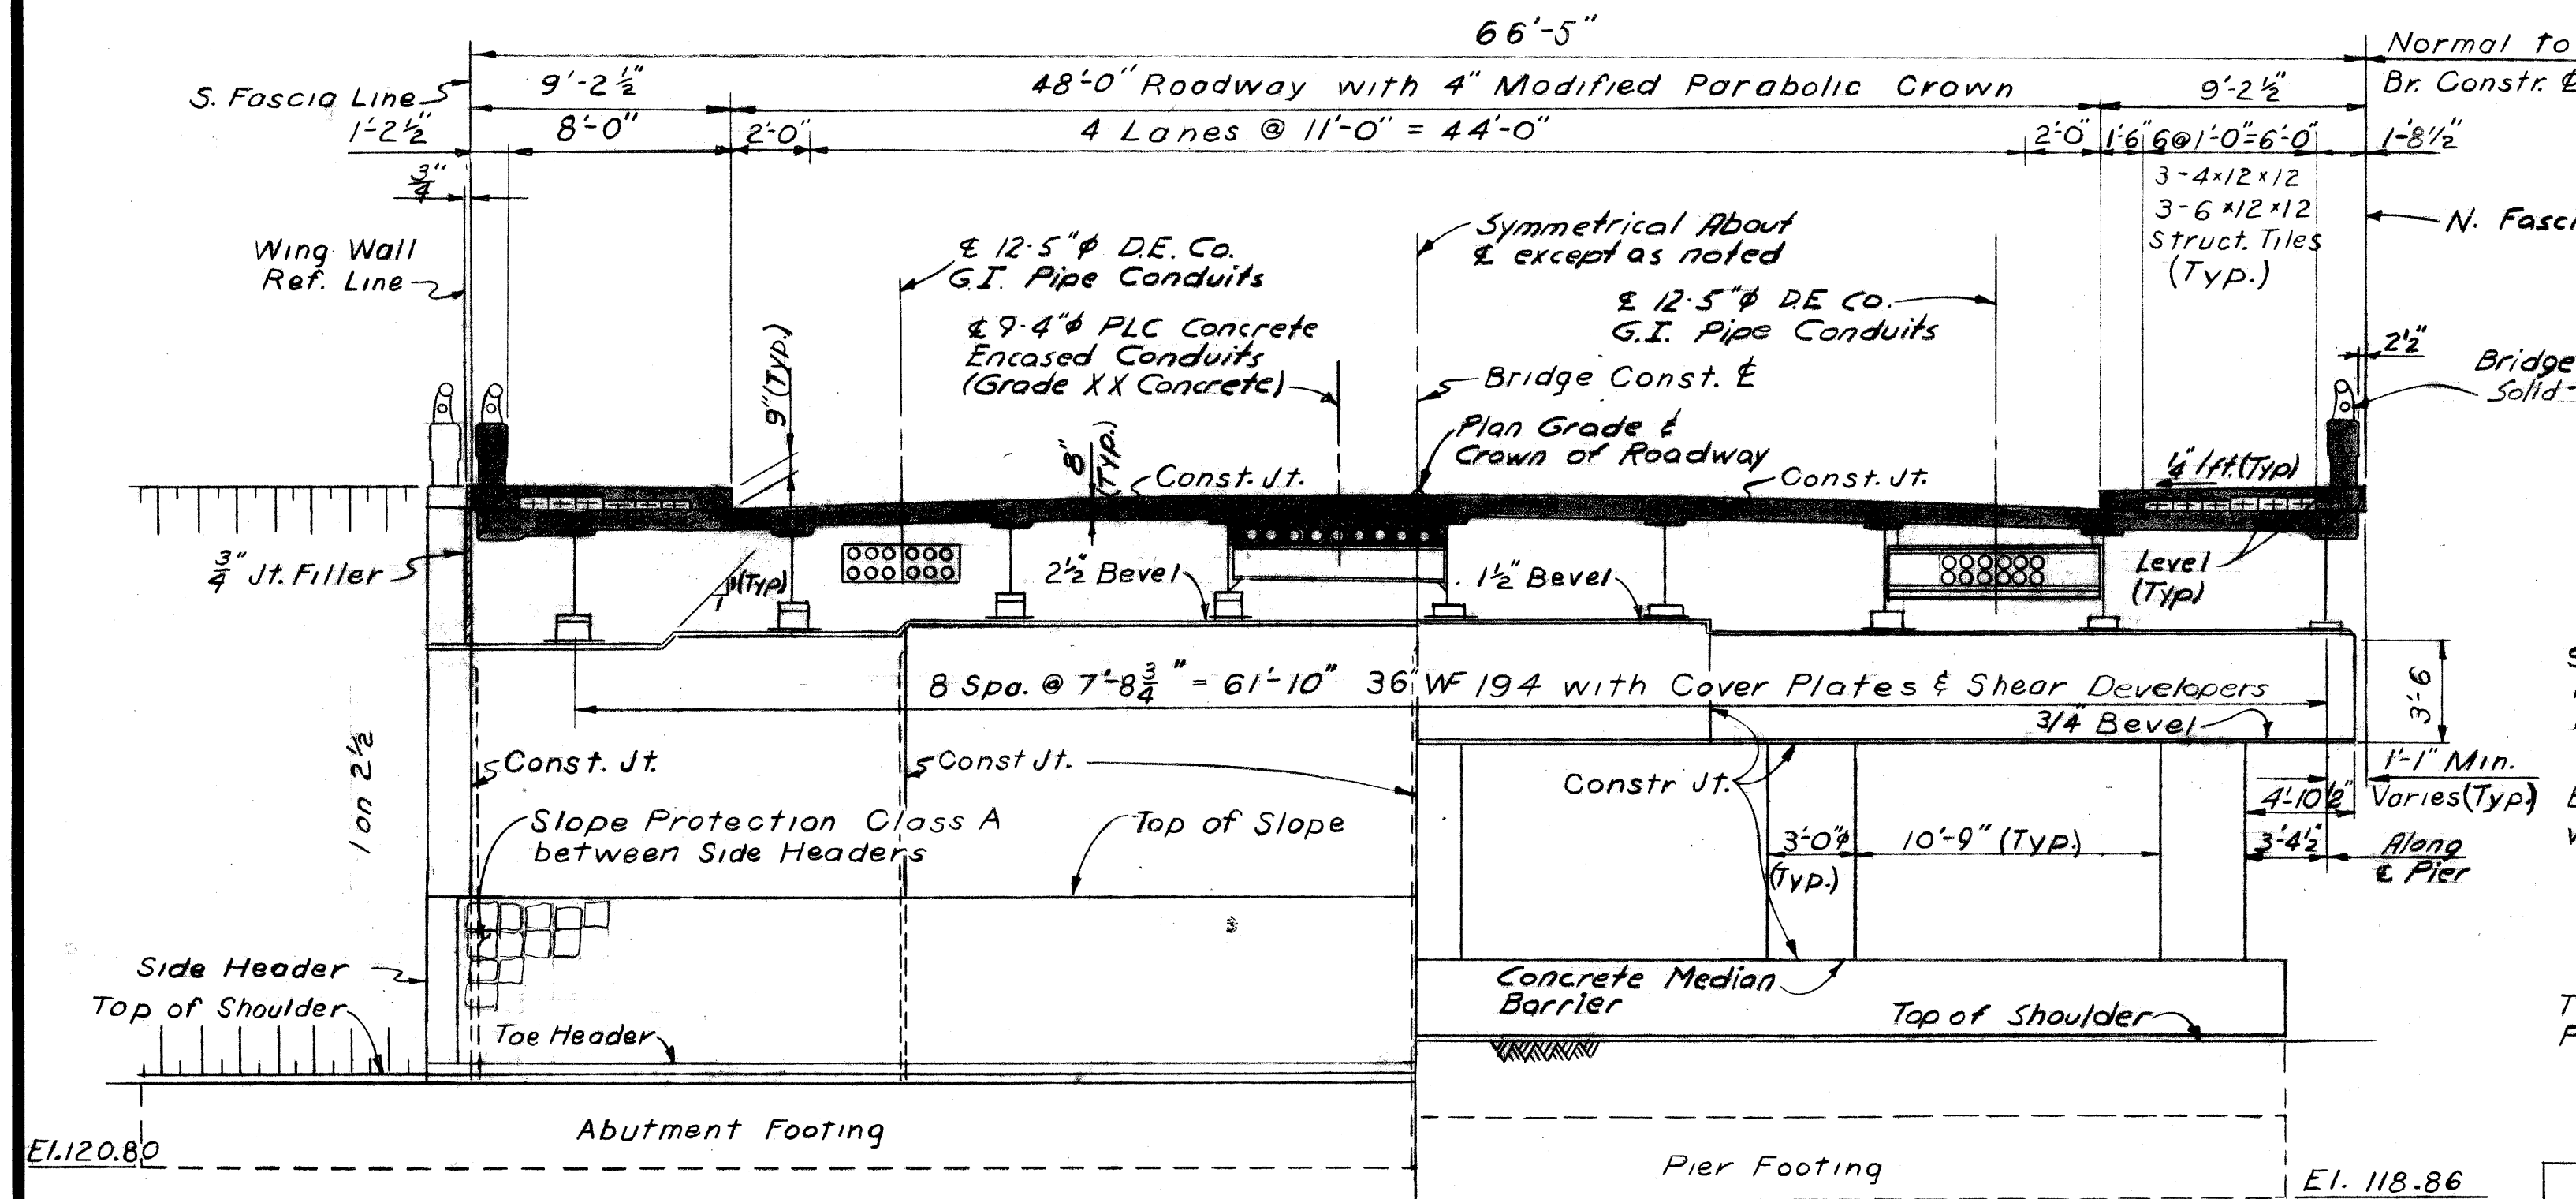 66'-5"
Normal to
S. Fascia Line
9'-2 1/2"
48'-0" Roadway with 4" Modified Parabolic Crown
9'-2 1/2"
Br. Constr. ℄
1'-2 1/2"
8'-0"
2'-0"
4 Lanes @ 11'-0" = 44'-0"
2'-0"
1'-6"
6@1'-0"=6'-0"
1'-8 1/2"
3/4"
3-4×12×12
3-6×12×12
Struct. Tiles
(Typ.)
Wing Wall
Ref. Line
℄ 12-5"ϕ D.E. Co.
G.I. Pipe Conduits
Symmetrical About
℄ except as noted
N. Fasci
℄ 9-4"ϕ PLC Concrete
Encased Conduits
(Grade XX Concrete)
℄ 12-5"ϕ D.E Co.
G.I. Pipe Conduits
9"(Typ.)
Bridge Const. ℄
2 1/2"
Bridge
Solid
8"
(Typ.)
Plan Grade &
Crown of Roadway
Const. Jt.
Const. Jt.
1/4" 1ft.(Typ)
3/4" Jt. Filler
1
1
(Typ)
2 1/2" Bevel
1 1/2" Bevel
Level
(Typ)
8 Spa. @ 7'-8 3/4" = 61'-10"
36" WF 194 with Cover Plates & Shear Developers
3'-6
3/4" Bevel
1 on 2 1/2
Const. Jt.
Const Jt.
Constr Jt.
1'-1" Min.
Varies(Typ.)
4'-10 1/2"
Slope Protection Class A
between Side Headers
Top of Slope
3'-0"ϕ
(Typ.)
10'-9" (Typ.)
3'-4 1/2"
Along
℄ Pier
Side Header
Top of Shoulder
Concrete Median
Barrier
Toe Header
Top of Shoulder
Abutment Footing
El.120.80
Pier Footing
El. 118.86